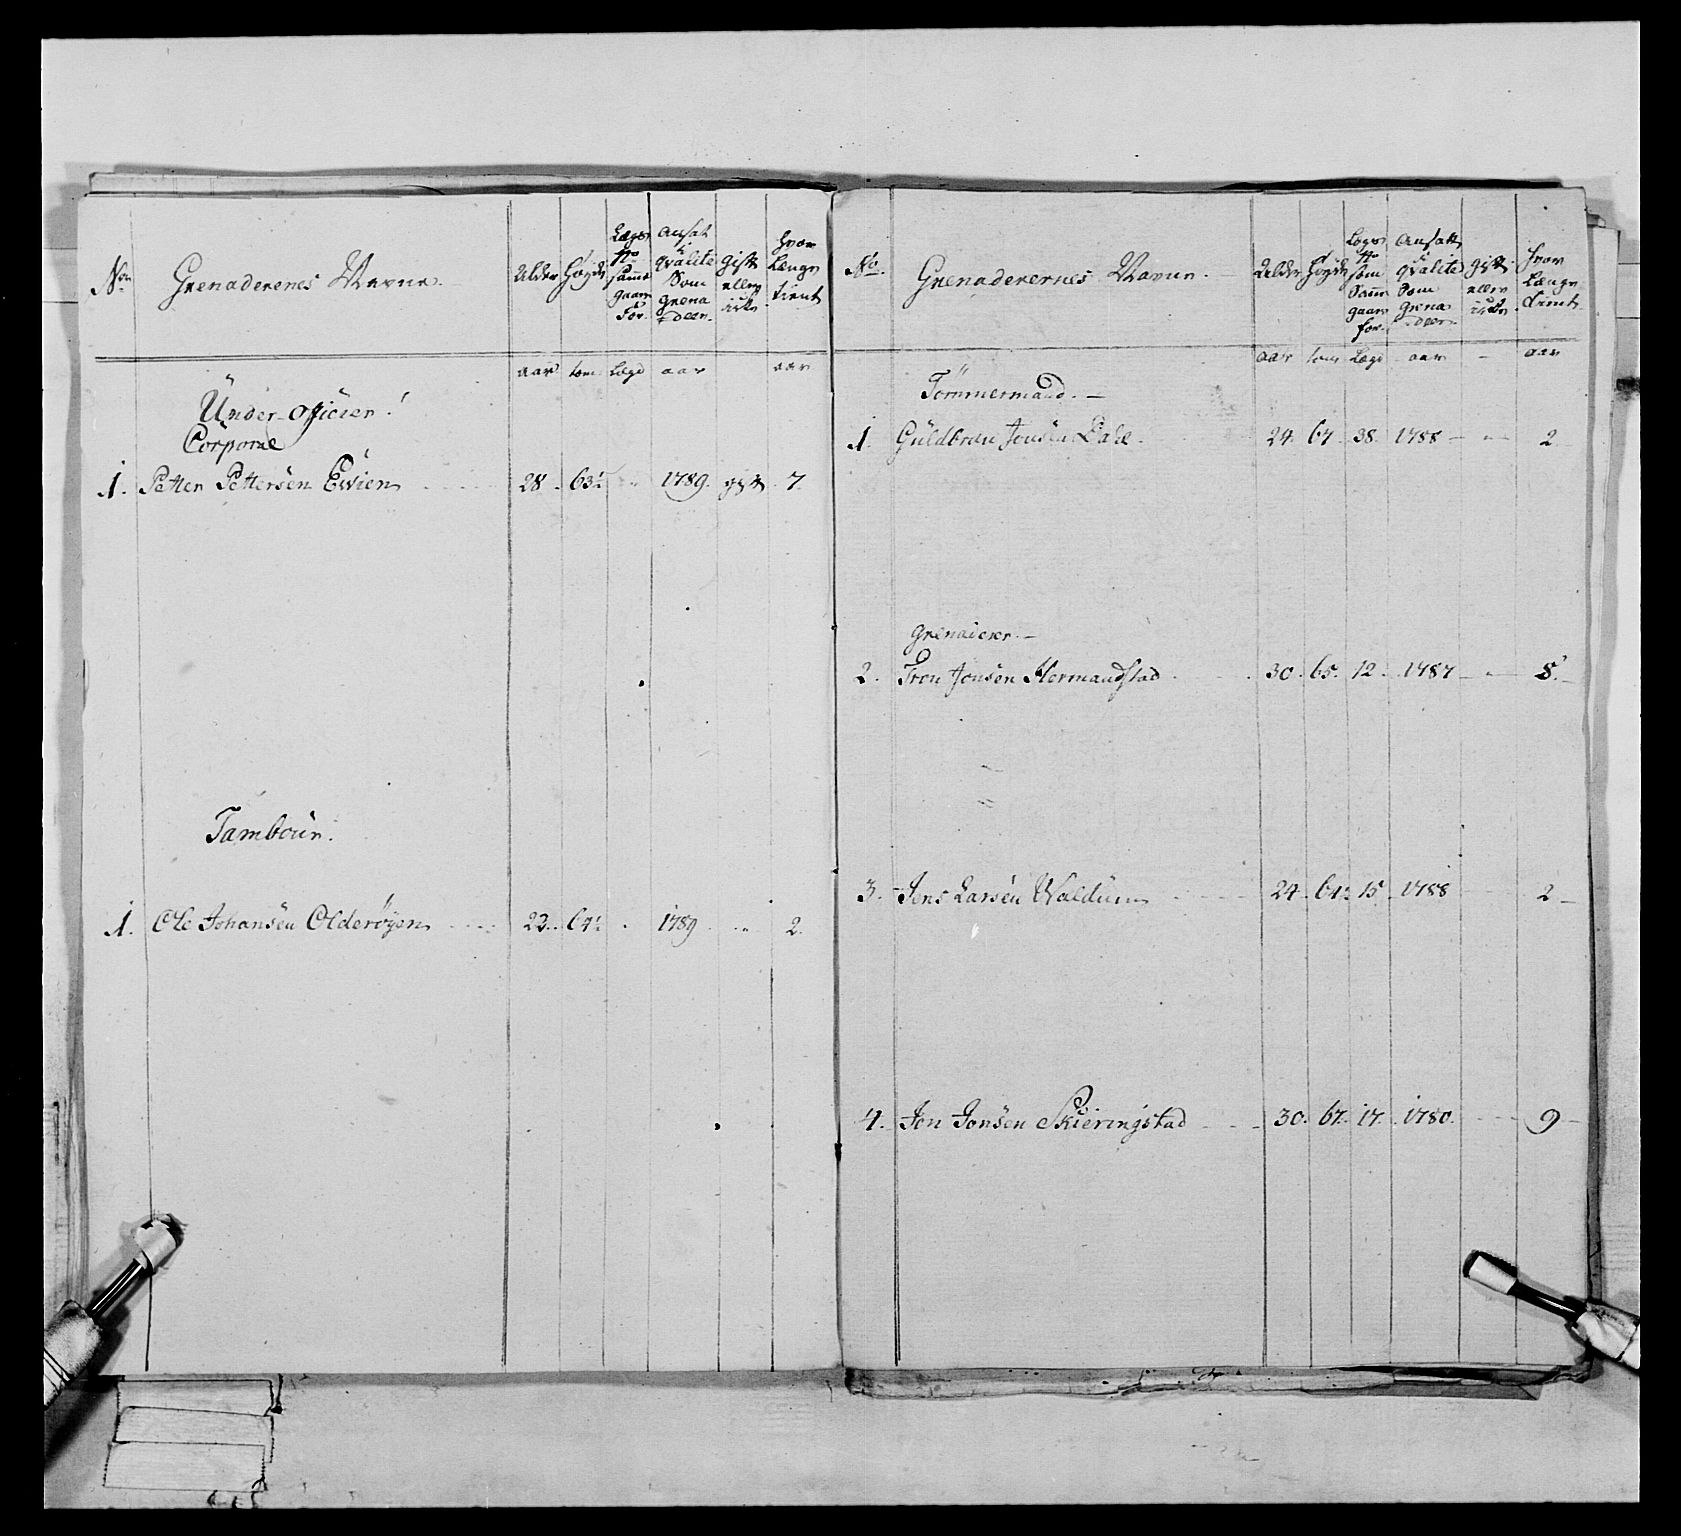 No
Grenaderenes Navne.
Alder
Høyde
Lægs
No
samme
gaar
for.
Ansat
i
qvalite
Som
grena
deer.
gift
eller
ikke
hvor
Længe
tient
aar tom Lægd aar aar
Ünder-Officier!
Corporal
1. Petter Pettersen Evien 28. 63½ " 1789. gift. 7.
Tambour.
1. Ole Johansen Olderøyen 23. 64½ " 1789 " 2.
No.
Grenaderernes Navne.
Alder
Høyde
Lægs
No
som
Samme
gaar
for.
Ansatt
i
qvalite
Som
grena
deer.
gift
eller
ikke
hvor
Længe
tient
aar tom Lægd aar - aar
Tømmermand. -
1. Güldbran Jonsen Dahl. 24. 67. 38. 1788 - " - 2
Grenaderer. -
2. Tron Jonsen Hermandstad 30. 65. 12. 1787 - " - 8.
3. Jens Larsen Waldum 24. 64½ 15. 1788 2
4. Jon Jonsen Skieringstad 30. 67. 17. 1780. 9